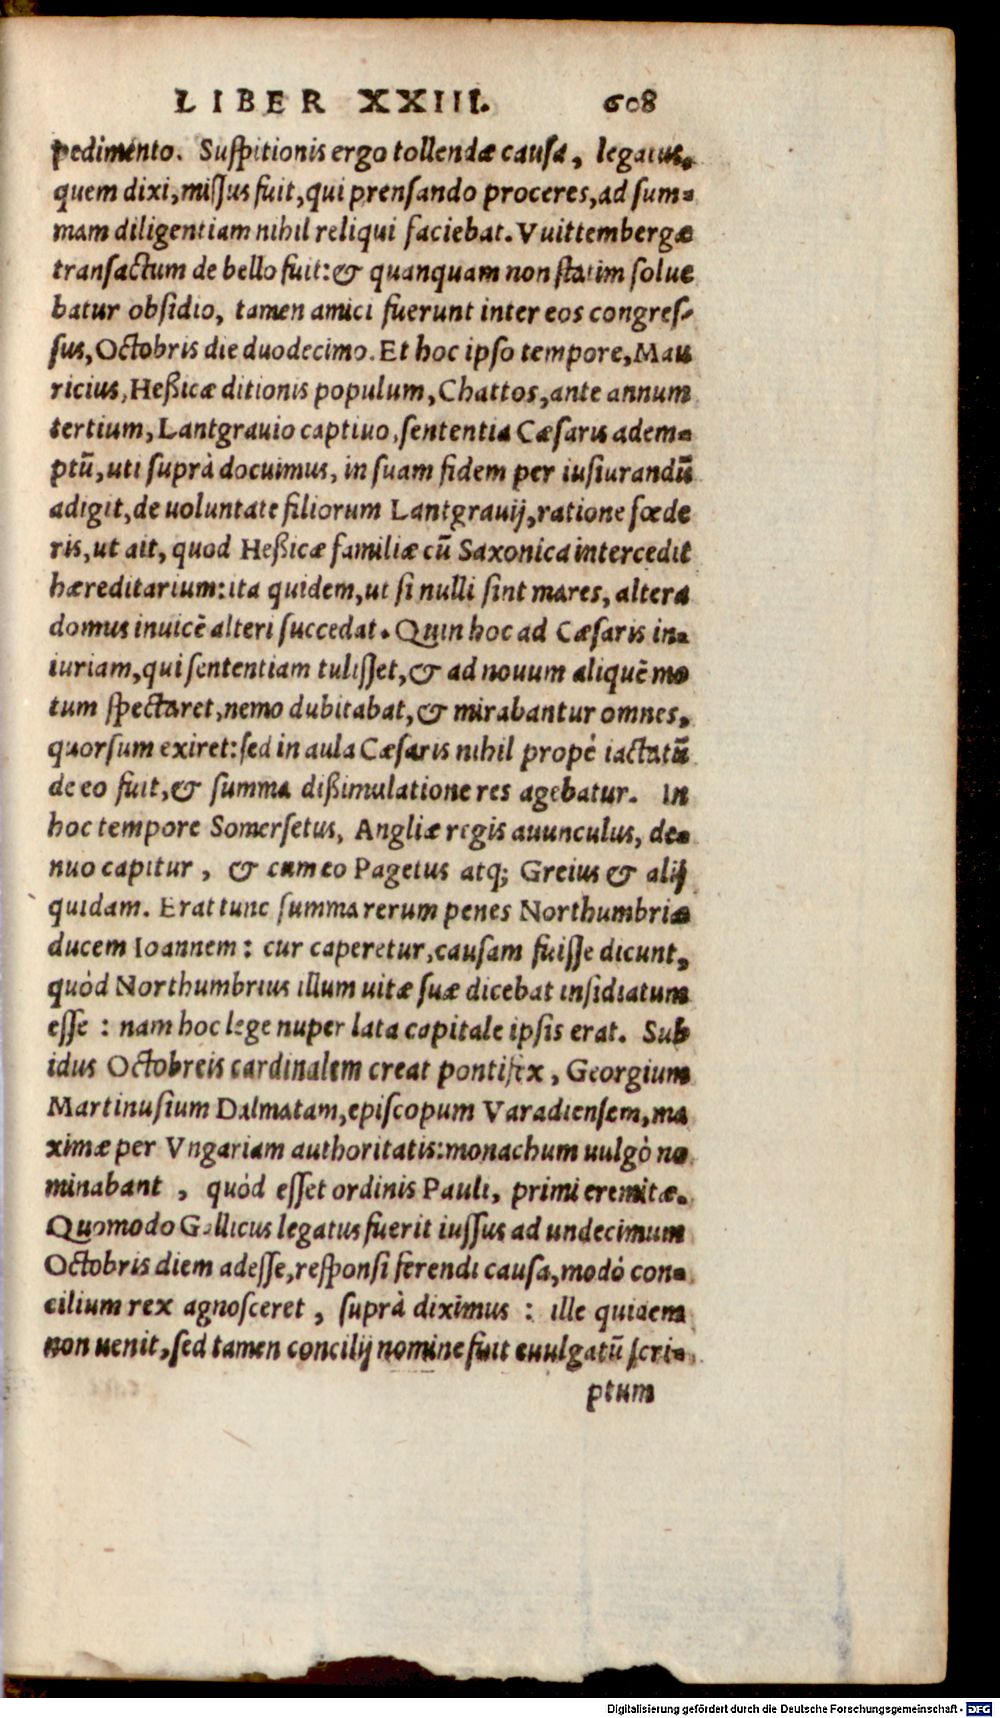 LIBER XXIII. 608
pedimento. Suspitionis ergo tollendæ causa, legatus,
quem dixi, missus fuit, qui prensando proceres, ad sum-
mam diligentiam nihil reliqui faciebat. Vuittembergæ
transactum de bello fuit: & quanquam non statim solue
batur obsidio, tamen amici fuerunt inter eos congres-
sus, Octobris die duodecimo. Et hoc ipso tempore, Mau
ricius, Heßicæ ditionis populum, Chattos, ante annum
tertium, Lantgrauio captiuo, sententia Cæsaris adem-
ptū, uti suprà docuimus, in suam fidem per iusiurandū
adigit, de uoluntate filiorum Lantgrauij, ratione fœde
ris, ut ait, quod Heßicæ familiæ cū Saxonica intercedit
hæreditarium: ita quidem, ut si nulli sint mares, altera
domus inuicē alteri succedat. Quin hoc ad Cæsaris in-
iuriam, qui sententiam tulisset, & ad nouum aliquē mo
tum spectaret, nemo dubitabat, & mirabantur omnes,
quorsum exiret: sed in aula Cæsaris nihil propè iactatū
de eo fuit, & summa dißimulatione res agebatur. In
hoc tempore Somersetus, Angliæ regis auunculus, de-
nuo capitur, & cum eo Pagetus atq; Greius & alij
quidam. Erat tunc summa rerum penes Northumbriæ
ducem Ioannem: cur caperetur, causam fuisse dicunt,
quòd Northumbrius illum uitæ suæ dicebat insidiatum
esse: nam hoc lege nuper lata capitale ipsis erat. Sub
idus Octobreis cardinalem creat pontifex, Georgium
Martinusium Dalmatam, episcopum Varadiensem, ma
ximæ per Vngariam authoritatis: monachum uulgò no
minabant, quòd esset ordinis Pauli, primi eremitæ.
Quomodo Gallicus legatus fuerit iussus ad undecimum
Octobris diem adesse, responsi ferendi causa, modò con-
cilium rex agnosceret, suprà diximus: ille quidem
non uenit, sed tamen concilij nomine fuit euulgatū scri-
ptum
Digitalisierung gefördert durch die Deutsche Forschungsgemeinschaft - DFG